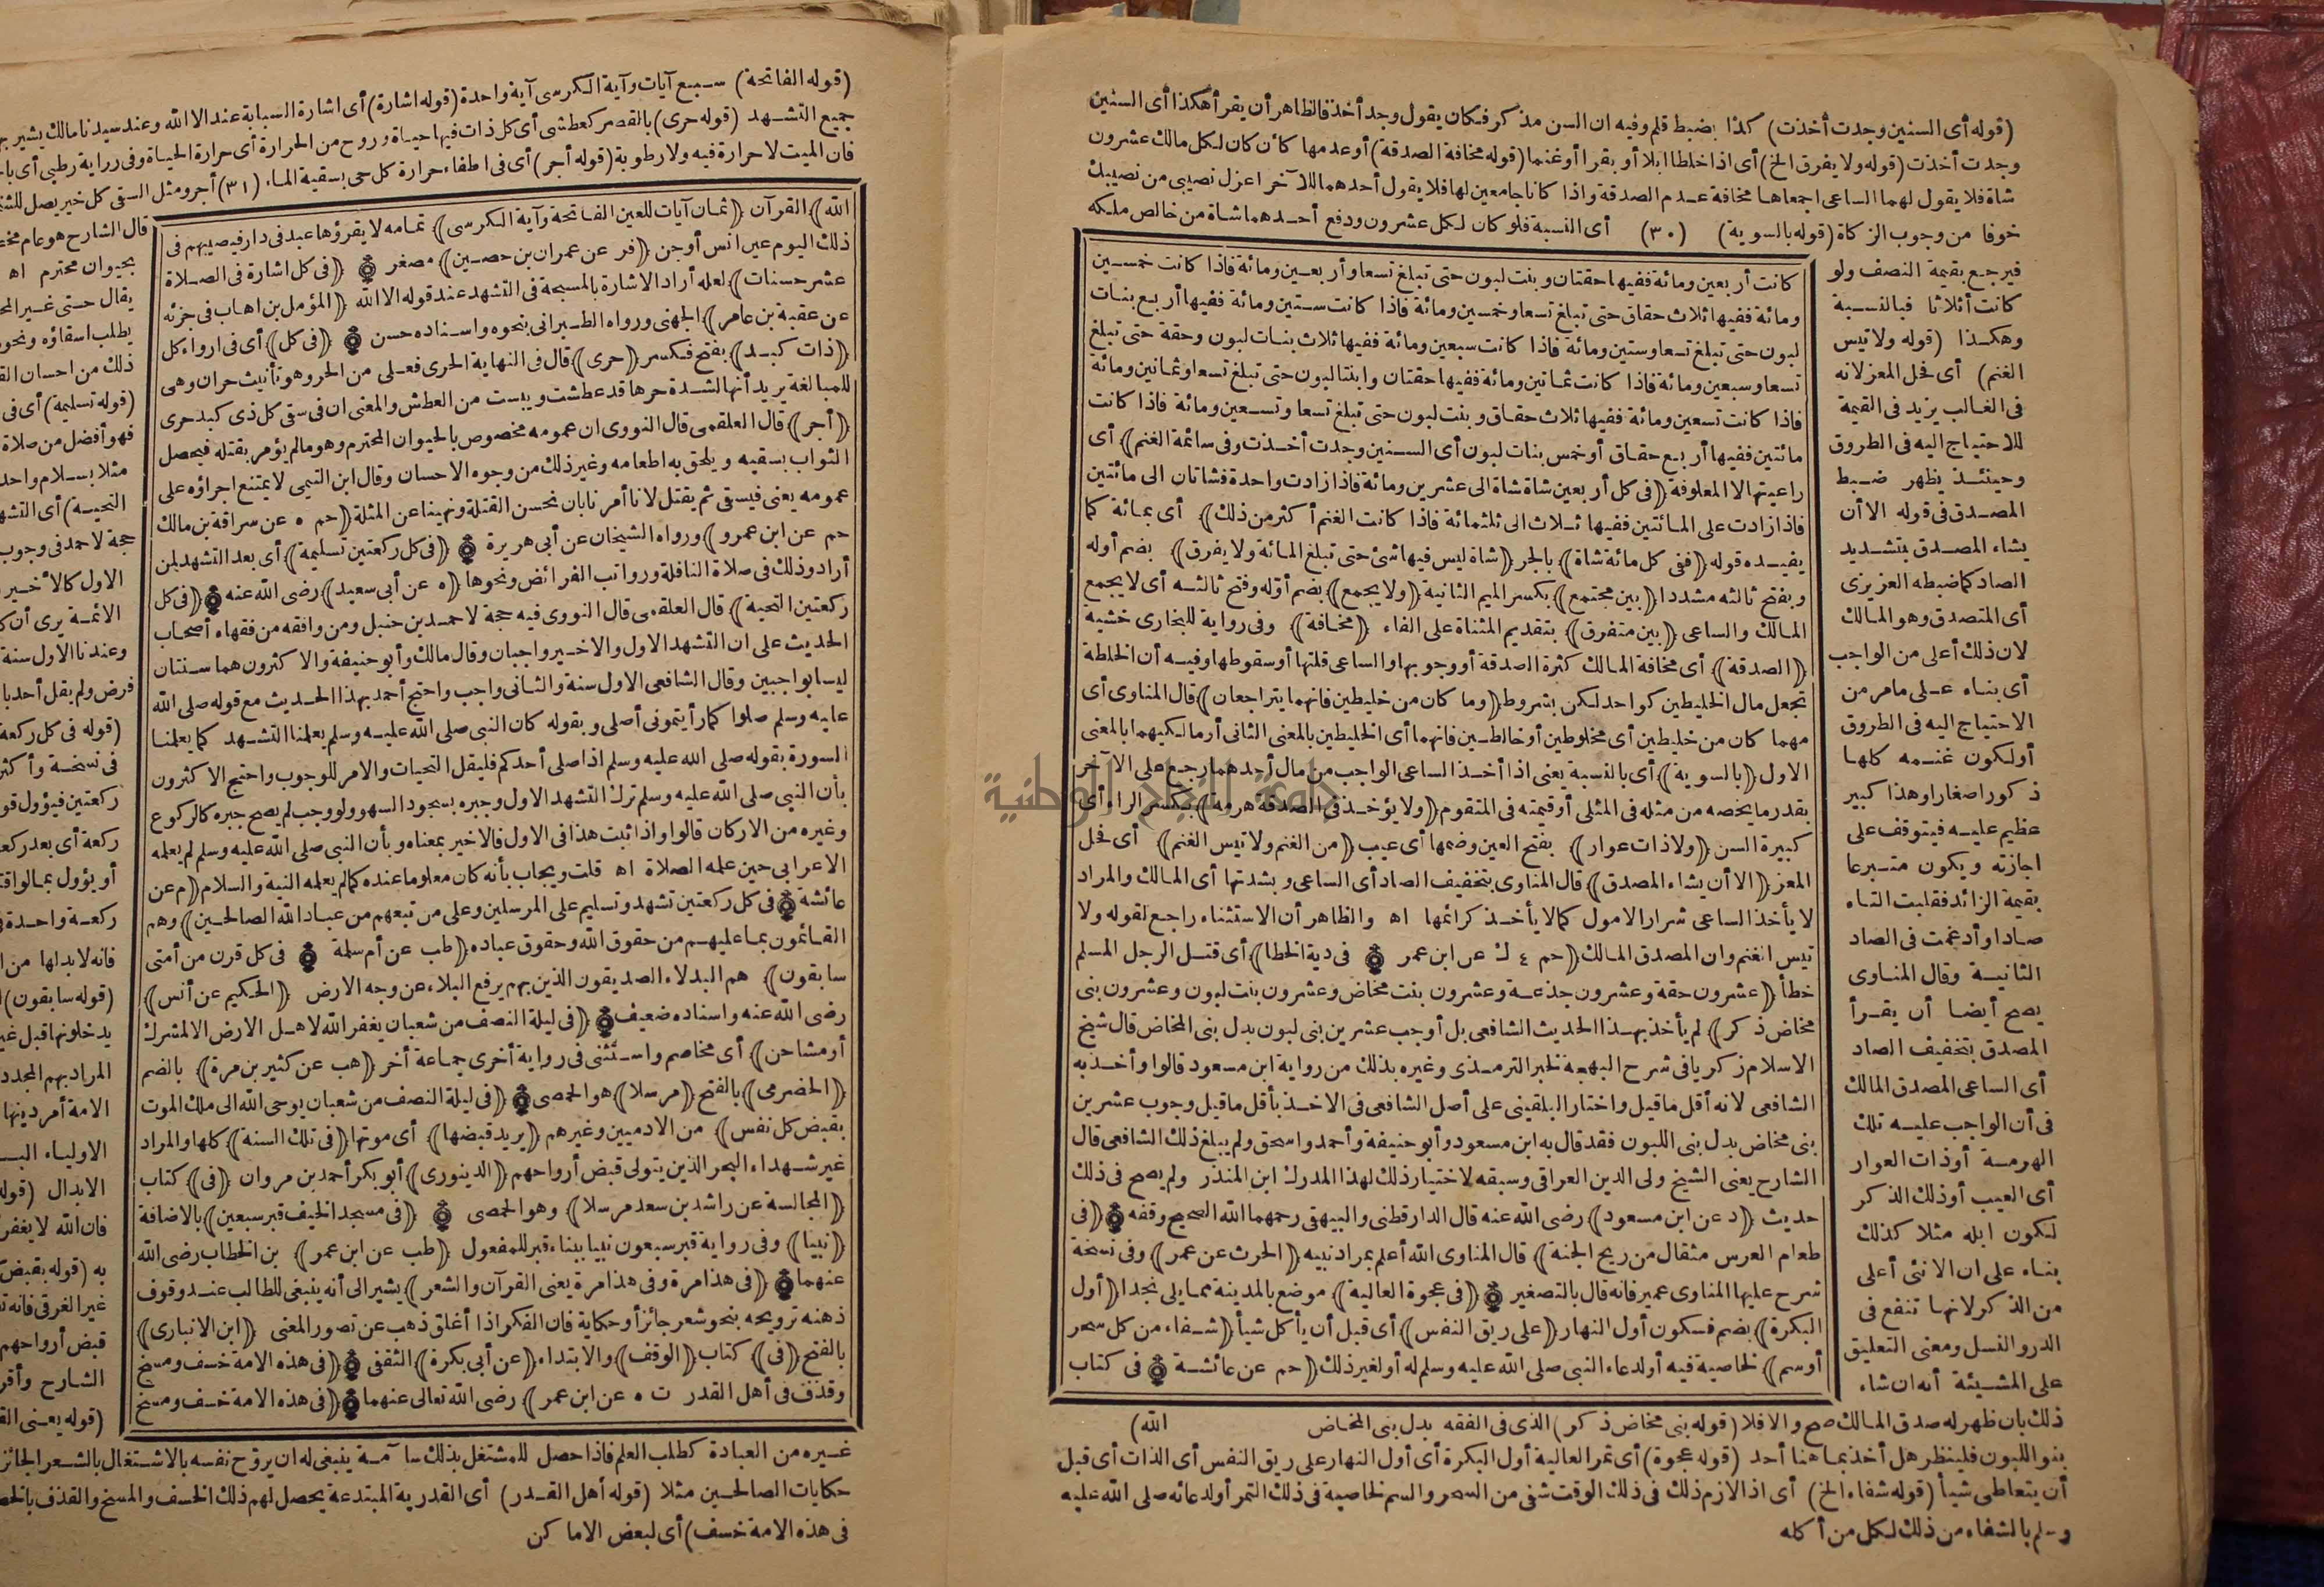 (قوله أى السنين وجدت أخذت) كذا بضبط قلم وفيه ان السن مذكر فكان يقول وجد أخذ فالظاهر أن يقرأ هكذا أى السنين
وجدت أخذت (قوله ولا يفرق الخ) أى اذا خلطا ابلا أو بقرا أو غنما (قوله مخافة الصدقة) أو عدمها كأن كان لكل مالك عشرون
شاة فلا يقول لهما الساعى اجمعاها مخافة عدم الصدقة واذا كانا جامعين لها فلا يقول أحدهما للآخر اعزل نصيبى من نصيبك
خوفا من وجوب الزكاة (قوله بالسوية) (٣٠) أى النسبة فلو كان لكل عشرون ودفع أحدهما شاة من خالص ملكه
فيرجع بقيمة النصف ولو
كانت أثلاثا فبالنسبة
وهكذا (قوله ولا تيس
الغنم) أى فحل المعز لانه
فى الغالب يزيد فى القيمة
للاحتياج اليه فى الطروق
وحينئذ يظهر ضبط
المصدق فى قوله الا أن
يشاء المصدق بتشديد
الصاد كما ضبطه العزيزى
أى المتصدق وهو المالك
لان ذلك أعلى من الواجب
أى بناء على ما مر من
الاحتياج اليه فى الطروق
أو لكون غنمه كلها
ذكورا صغارا وهذا كبير
عظيم عليه فيتوقف على
اجازته ويكون متبرعا
بقيمة الزائد فقلبت التاء
صادا وأدغمت فى الصاد
الثانية وقال المناوى
يصح أيضا أن يقرأ
المصدق بتخفيف الصاد
أى الساعى المصدق المالك
فى أن الواجب عليه تلك
الهرمة أو ذات العوار
أى العيب أو ذلك الذكر
لكون ابله مثلا كذلك
بناء على ان الانثى أعلى
من الذكر لانها تنفع فى
الدر والنسل ومعنى التعليق
على المشيئة أنه ان شاء
كانت أربعين ومائة ففيها حقتان وبنت لبون حتى تبلغ تسعا وأربعين ومائة فاذا كانت خمسين
ومائة ففيها ثلاث حقاق حتى تبلغ تسعا وخمسين ومائة فاذا كانت ستين ومائة ففيها أربع بنات
لبون حتى تبلغ تسعا وستين ومائة فاذا كانت سبعين ومائة ففيها ثلاث بنات لبون وحقة حتى تبلغ
تسعا وسبعين ومائة فاذا كانت ثمانين ومائة ففيها حقتان وابنتا لبون حتى تبلغ تسعا وثمانين ومائة
فاذا كانت تسعين ومائة ففيها ثلاث حقاق وبنت لبون حتى تبلغ تسعا وتسعين ومائة فاذا كانت
مائتين ففيها أربع حقاق أو خمس بنات لبون أى السنين وجدت أخذت وفى سائمة الغنم) أى
راعيتها لا المعلوفة (فى كل أربعين شاة شاة الى عشرين ومائة فاذا زادت واحدة فشاتان الى مائتين
فاذا زادت على المائتين ففيها ثلاث الى ثلثمائة فاذا كانت الغنم أكثر من ذلك) أى بمائة كما
يفيده قوله (ففى كل مائة شاة) بالجر (شاة ليس فيها شئ حتى تبلغ المائة ولا يفرق) بضم أوله
وبفتح ثالثه مشددا (بين مجتمع) بكسر الميم الثانية (ولا يجمع) بضم أوله وفتح ثالثه أى لا يجمع
المالك والساعى (بين متفرق) بتقديم المثناة على الفاء (مخافة) وفى رواية للبخارى خشية
(الصدقة) أى مخافة المالك كثرة الصدقة أو وجوبها والساعى قلتها أو سقوطها وفيه أن الخلطة
تجعل مال الخليطين كواحد لكن بشروط (وما كان من خليطين فانهما يتراجعان) قال المناوى أى
مهما كان من خليطين أى مخلوطين أو خالطين فانهما أى الخليطين بالمعنى الثانى أو مالكيهما بالمعنى
الاول (بالسوية) أى بالنسبة يعنى اذا أخذ الساعى الواجب من مال أحدهما رجع على الآخر
بقدر ما يخصه من مثله فى المثلى أو قيمته فى المتقوم (ولا يؤخذ فى الصدقة هرمة) بكسر الراء أى
كبيرة السن (ولا ذات عوار) بفتح العين وضمها أى عيب (من الغنم ولا تيس الغنم) أى فحل
المعز (الا أن يشاء المصدق) قال المناوى بتخفيف الصاد أى الساعى وبشدتها أى المالك والمراد
لا يأخذ الساعى شرار الامول كما لا يأخذ كرائمها اه والظاهر أن الاستثناء راجع لقوله ولا
تيس الغنم وان المصدق المالك (حم ٤ ك عن ابن عمر ۞ فى دية الخطا) أى قتل الرجل المسلم
خطأ (عشرون حقة وعشرون جذعة وعشرون بنت مخاض وعشرون بنت لبون وعشرون بنى
مخاض ذكر) لم يأخذ بهذا الحديث الشافعى بل أوجب عشرين بنى لبون بدل بنى المخاض قال شيخ
الاسلام زكريا فى شرح البهجة لخبر الترمذى وغيره بذلك من رواية ابن مسعود قالوا وأخذ به
الشافعى لانه أقل ما قيل واختار البلقينى على أصل الشافعى فى الاخذ بأقل ما قيل وجوب عشرين
بنى مخاض بدل بنى اللبون فقد قال به ابن مسعود وأبو حنيفة وأحمد واسحق ولم يبلغ ذلك الشافعى قال
الشارح يعنى الشيخ ولى الدين العراقى وسبقه لاختيار ذلك لهذا المدرك ابن المنذر ولم يصح فى ذلك
حديث (د عن ابن مسعود) رضى الله عنه قال الدارقطنى والبيهقى رحمهما الله الصحيح وقفه ۞ (فى
طعام العرس مثقال من ريح الجنة) قال المناوى الله أعلم بمراد نبيه (الحرث عن عمر) وفى نسخة
شرح عليها المناوى عمير فانه قال بالتصغير ۞ (فى عجوة العالية) موضع بالمدينة مما يلى نجدا (أول
البكرة) بضم فسكون أول النهار (على ريق النفس) أى قبل أن يأكل شيأ (شفاء من كل سحر
أو سم) لخاصية فيه أو لدعاء النبى صلى الله عليه وسلم له أو لغير ذلك (حم عن عائشة ۞ فى كتاب
ذلك بان ظهر له صدق المالك صح والا فلا (قوله بنى مخاض ذكر) الذى فى الفقه بدل بنى المخاض الله)
بنو اللبون فلينظر هل أخذ بما هنا أحد (قوله عجوة) أى تمر العالية أول البكرة أى أول النهار على ريق النفس أى الذات أى قبل
أن يتعاطى شيأ (قوله شفاء الخ) أى اذا لازم ذلك فى ذلك الوقت شفى من السحر والسم لخاصية فى ذلك التمر أو لدعائه صلى الله عليه
وسلم بالشفاء من ذلك لكل من أكله
(قوله الفاتحة) سبع آيات وآية الكرسى آية واحدة (قوله اشارة) أى اشارة السبابة عند الا الله وعند سيدنا مالك يشير
جميع التشهد (قوله حرى) بالقصر كعطشى أى كل ذات فيها حياة وروح من الحرارة أى حرارة الحياة وفى رواية رطبى أى
فان الميت لا حرارة فيه ولا رطوبة (قوله أجر) أى فى اطفاء حرارة كل حى بسقية الماء (٣١) أجر ومثل السقى كل خير يصل
الله) القرآن (ثمان آيات للعين الفاتحة وآية الكرسى) تمامه لا يقرؤها عبد فى دار فيصيبهم فى
ذلك اليوم عين انس أو جن (فر عن عمران بن حصين) مصغر ۞ (فى كل اشارة فى الصلاة
عشر حسنات) لعله أراد الاشارة بالمسبحة فى التشهد عند قوله الا الله (المؤمل بن اهاب فى جزئه
عن عقبة بن عامر) الجهنى ورواه الطبرانى بنحوه واسناده حسن ۞ (فى كل) أى فى ارواء كل
(ذات كبد) بفتح فكسر (حرى) قال فى النهاية الحرى فعلى من الحر وهو تأنيث حران وهى
للمبالغة يريد أنها لشدة حرها قد عطشت ويبست من العطش والمعنى ان فى سقى كل ذى كبد حرى
(أجر) قال العلقمى قال النووى ان عمومه مخصوص بالحيوان المحترم وهو ما لم يؤمر بقتله فيحصل
الثواب بسقيه ويلحق به اطعامه وغير ذلك من وجوه الاحسان وقال ابن التيمى لا يمتنع اجراؤه على
عمومه يعنى فيسقى ثم يقتل لانا أمرنا بان نحسن القتلة ونهينا عن المثلة (حم ه عن سراقة بن مالك
حم عن ابن عمرو) ورواه الشيخان عن أبى هريرة ۞ (فى كل ركعتين تسليمة) أى بعد التشهد لمن
أراد وذلك فى صلاة النافلة ورواتب الفرائض ونحوها (ه عن أبى سعيد) رضى الله عنه ۞ (فى كل
ركعتين التحية) قال العلقمى قال النووى فيه حجة لاحمد بن حنبل ومن وافقه من فقهاء أصحاب
الحديث على ان التشهد الاول والاخير واجبان وقال مالك وأبو حنيفة والاكثرون هما سنتان
ليسا بواجبين وقال الشافعى الاول سنة والثانى واجب واحتج أحمد بهذا الحديث مع قوله صلى الله
عليه وسلم صلوا كما رأيتمونى أصلى وبقوله كان النبى صلى الله عليه وسلم يعلمنا التشهد كما يعلمنا
السورة بقوله صلى الله عليه وسلم اذا صلى أحدكم فليقل التحيات والامر للوجوب واحتج الاكثرون
بأن النبى صلى الله عليه وسلم ترك التشهد الاول وجبره بسجود السهو ولو وجب لم يصح جبره كالركوع
وغيره من الاركان قالوا واذا ثبت هذا فى الاول فالاخير بمعناه وبأن النبى صلى الله عليه وسلم لم يعلمه
الاعرابى حين علمه الصلاة اه قلت ويجاب بأنه كان معلوما عنده كما لم يعلمه النية والسلام (م عن
عائشة ۞ فى كل ركعتين تشهد وتسليم على المرسلين وعلى من تبعهم من عباد الله الصالحين) وهم
القائمون بما عليهم من حقوق الله وحقوق عباده (طب عن أم سلمة ۞ فى كل قرن من أمتى
سابقون) هم البدلاء الصديقون الذين بهم يرفع البلاء عن وجه الارض (الحكيم عن أنس)
رضى الله عنه واسناده ضعيف ۞ (فى ليلة النصف من شعبان يغفر الله لاهل الارض الا لمشرك
أو مشاحن) أى مخاصم واستثنى فى رواية أخرى جماعة أخر (هب عن كثير بن مرة) بالضم
(الحضرمى) بالفتح (مرسلا) هو الحمصى ۞ (فى ليلة النصف من شعبان يوحى الله الى ملك الموت
بقبض كل نفس) من الادميين وغيرهم (يريد قبضها) أى موتها (فى تلك السنة) كلها والمراد
غير شهداء البحر الذين يتولى قبض أرواحهم (الدينورى) أبو بكر أحمد بن مروان (فى) كتاب
(المجالسة عن راشد بن سعد مرسلا) وهو الحمصى ۞ (فى مسجد الخيف قبر سبعين) بالاضافة
(نبيا) وفى رواية قبر سبعون نبيا ببناء قبر للمفعول (طب عن ابن عمر) بن الخطاب رضى الله
عنهما ۞ (فى هذا مرة وفى هذا مرة يعنى القرآن والشعر) يشير الى أنه ينبغى للطالب عند وقوف
ذهنه ترويحه بنحو شعر جائز أو حكاية فان الفكر اذا أغلق ذهب عن تصور المعنى (ابن الانبارى)
بالفتح (فى) كتاب (الوقف) والابتداء (عن أبى بكرة) الثقفى ۞ (فى هذه الامة خسف ومسخ
وقذف فى أهل القدر ت ه عن ابن عمر) رضى الله تعالى عنهما ۞ (فى هذه الامة خسف ومسخ
قال الشارح هو عام
بحيوان محترم اه
يقال حتى غير
يطلب اسقاؤه ونحو
ذلك من احسان
(قوله تسليمة) أى فى
فهو أفضل من صلاة
مثلا بسلام واحد
التحية) أى
حجة لاحمد فى وجوب
الاول كالاخير
الائمة يرى أن
وعندنا الاول سنة
فرض ولم يقل أحد
(قوله فى كل ركعة
فى نسخة وأكثر
ركعتين فيؤول
ركعة أى بعد
أو يؤول بما
ركعة واحدة
فانه لا بد لها من
(قوله سابقون)
يدخلونها قبل
المراد بهم
الامة أمر دينها
الاولياء
الابدال (قوله
فان الله لا يغفر
به (قوله بقبض
غير الغرقى فانه
قبض أرواحهم
الشارح
(قوله يعنى
غيره من العبادة كطلب العلم فاذا حصل للمشتغل بذلك سآمة ينبغى له ان يروح نفسه بالاشتغال بالشعر الجائز
حكايات الصالحين مثلا (قوله أهل القدر) أى القدرية المبتدعة يحصل لهم ذلك الخسف والمسخ والقذف
فى هذه الامة خسف) أى لبعض الاماكن
جامعة النجاح الوطنية